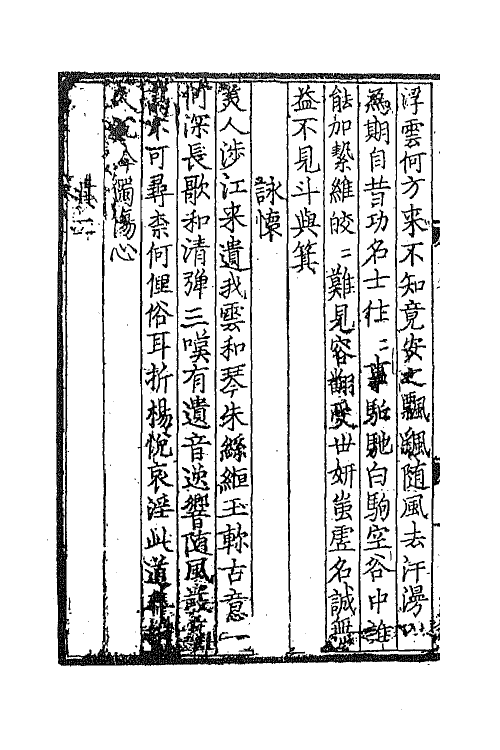 浮雲何方來不知竟安之飄飄随風去汗漫以
為期自昔功名士往〻事駈馳白駒空谷中誰
能加縶維皎〻難見容翻受世妍蚩虛名誠無
益不見斗與箕
詠懷
美人涉江来遺我雲和琴朱絲絙玉軫古意一
何深長歌和清弹三嘆有遺音逸響随風散
不可尋柰何俚俗耳折楊恱哀淫此道
今獨傷心
其二